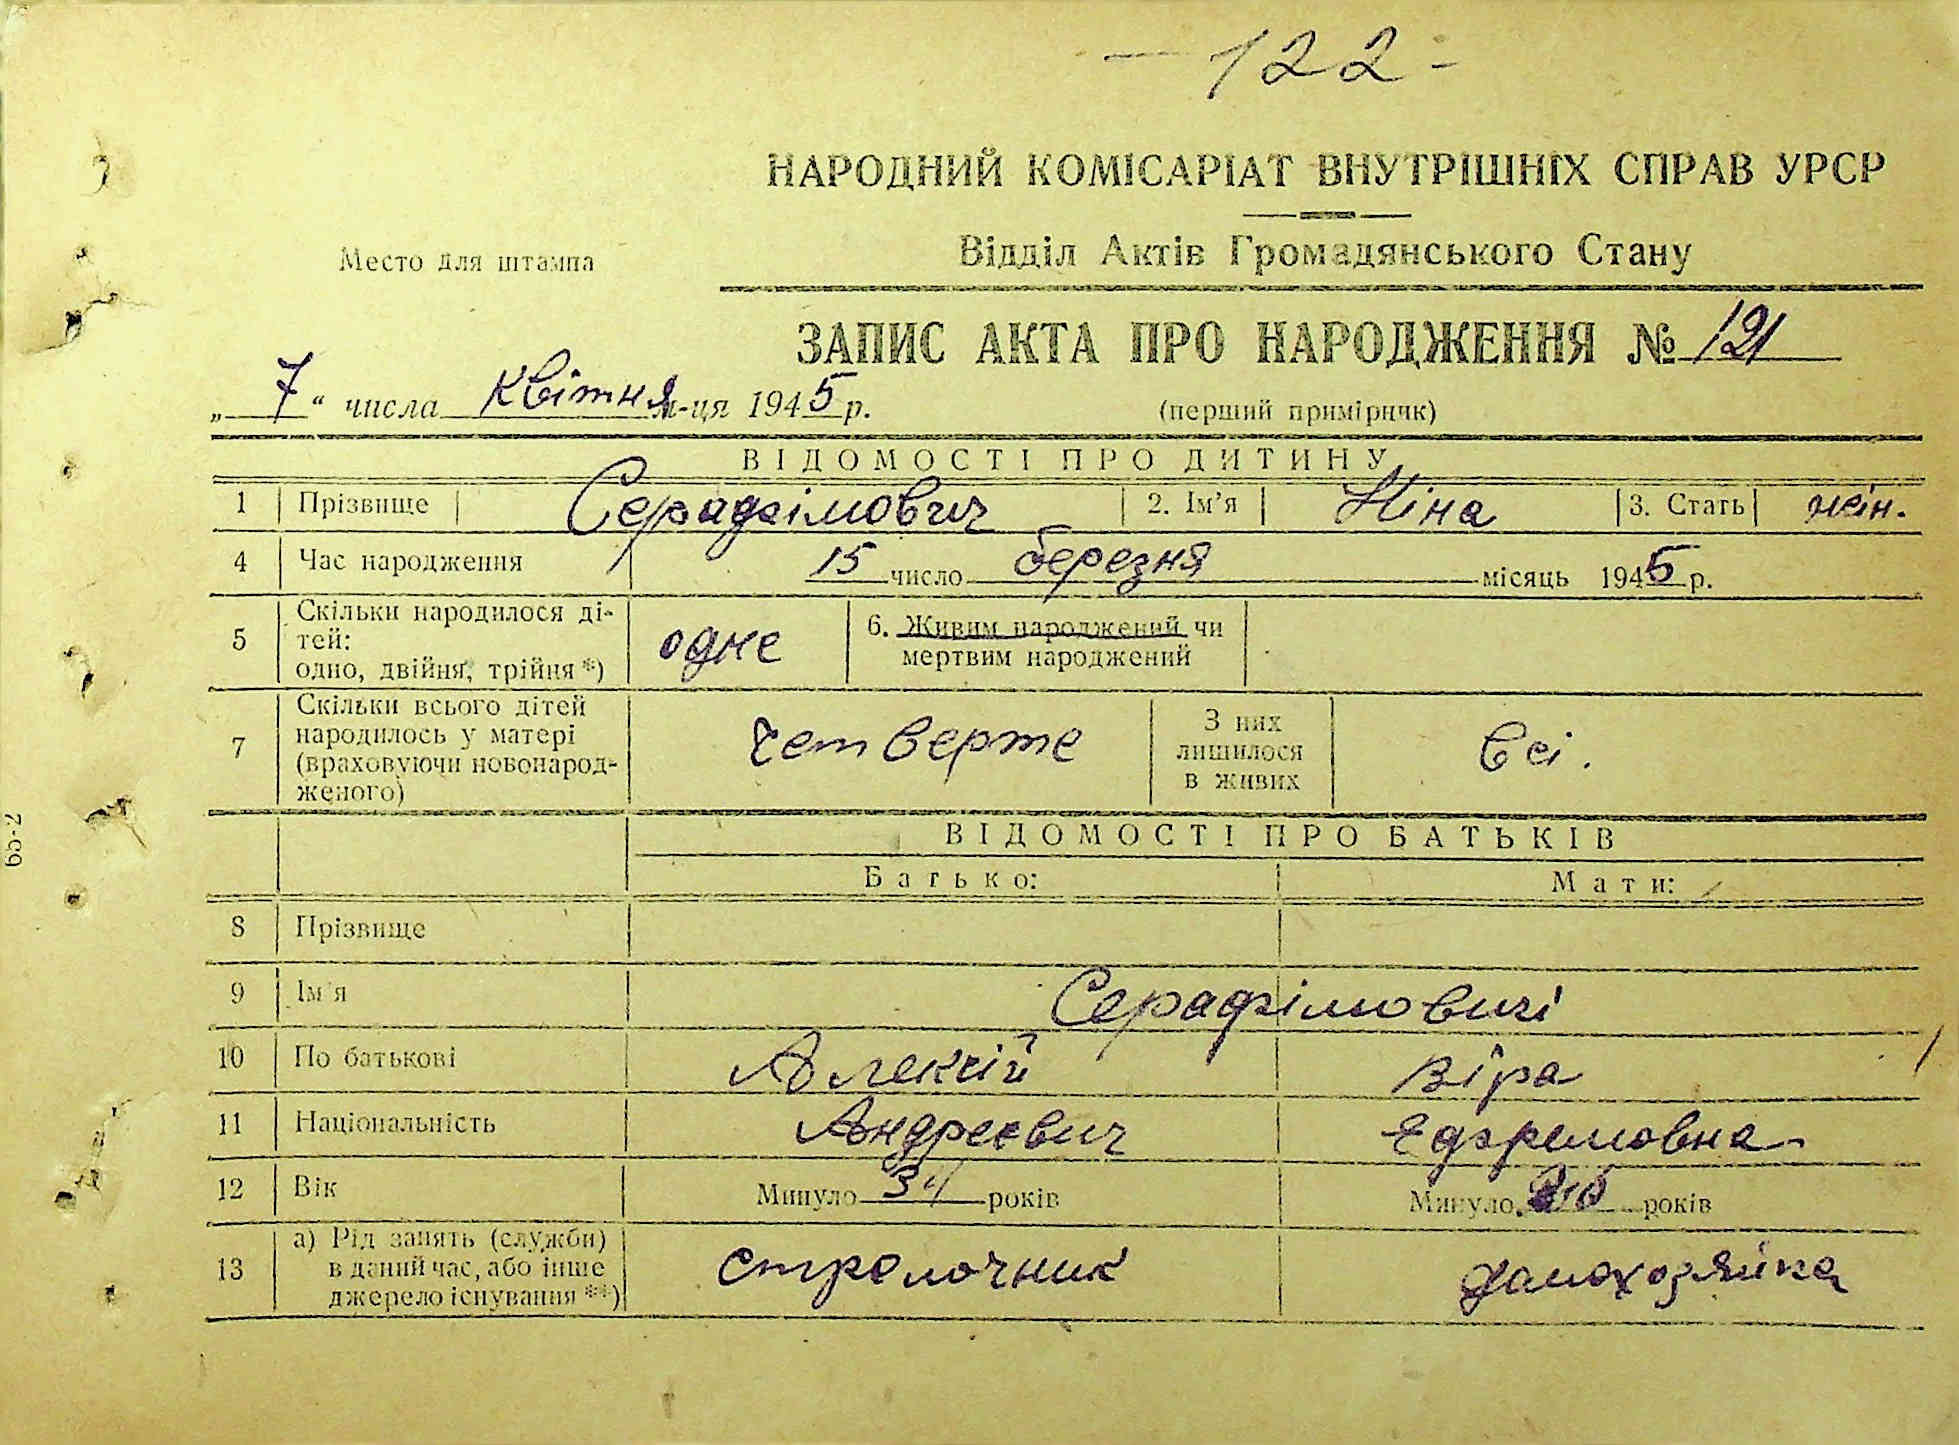 — 122 -
НАРОДНИЙ КОМІСАРІАТ ВНУТРІШНІХ СПРАВ УРСР
Место для штампа
Відділ Актів Громадянського Стану
ЗАПИС АКТА ПРО НАРОДЖЕННЯ № 121
„ 7 “ числа квітня м-ця 1945 р.
(перший примірник)
ВІДОМОСТІ ПРО ДИТИНУ
1 Прізвище Серафімович 2. Ім'я Ніна 3. Стать жін.
4 Час народження 15 число березня місяць 1945 р.
5 Скільки народилося ді-
тей:
одно, двійня, трійня *) одне 6. Живим народжений чи
мертвим народжений
7 Скільки всього дітей
народилось у матері
(враховуючи новонарод-
женого) четверте З них
лишилося
в живих Всі.
65-2
ВІДОМОСТІ ПРО БАТЬКІВ
Батько: Мати:
8 Прізвище
9 Ім'я Серафімовичі
10 По батькові Алексій Віра
11 Національність Андреевич Ефремовна
12 Вік Минуло 34 років Минуло років
13 а) Рід занять (служби)
в даний час, або інше
джерело існування **) стрелочник домохозяйка